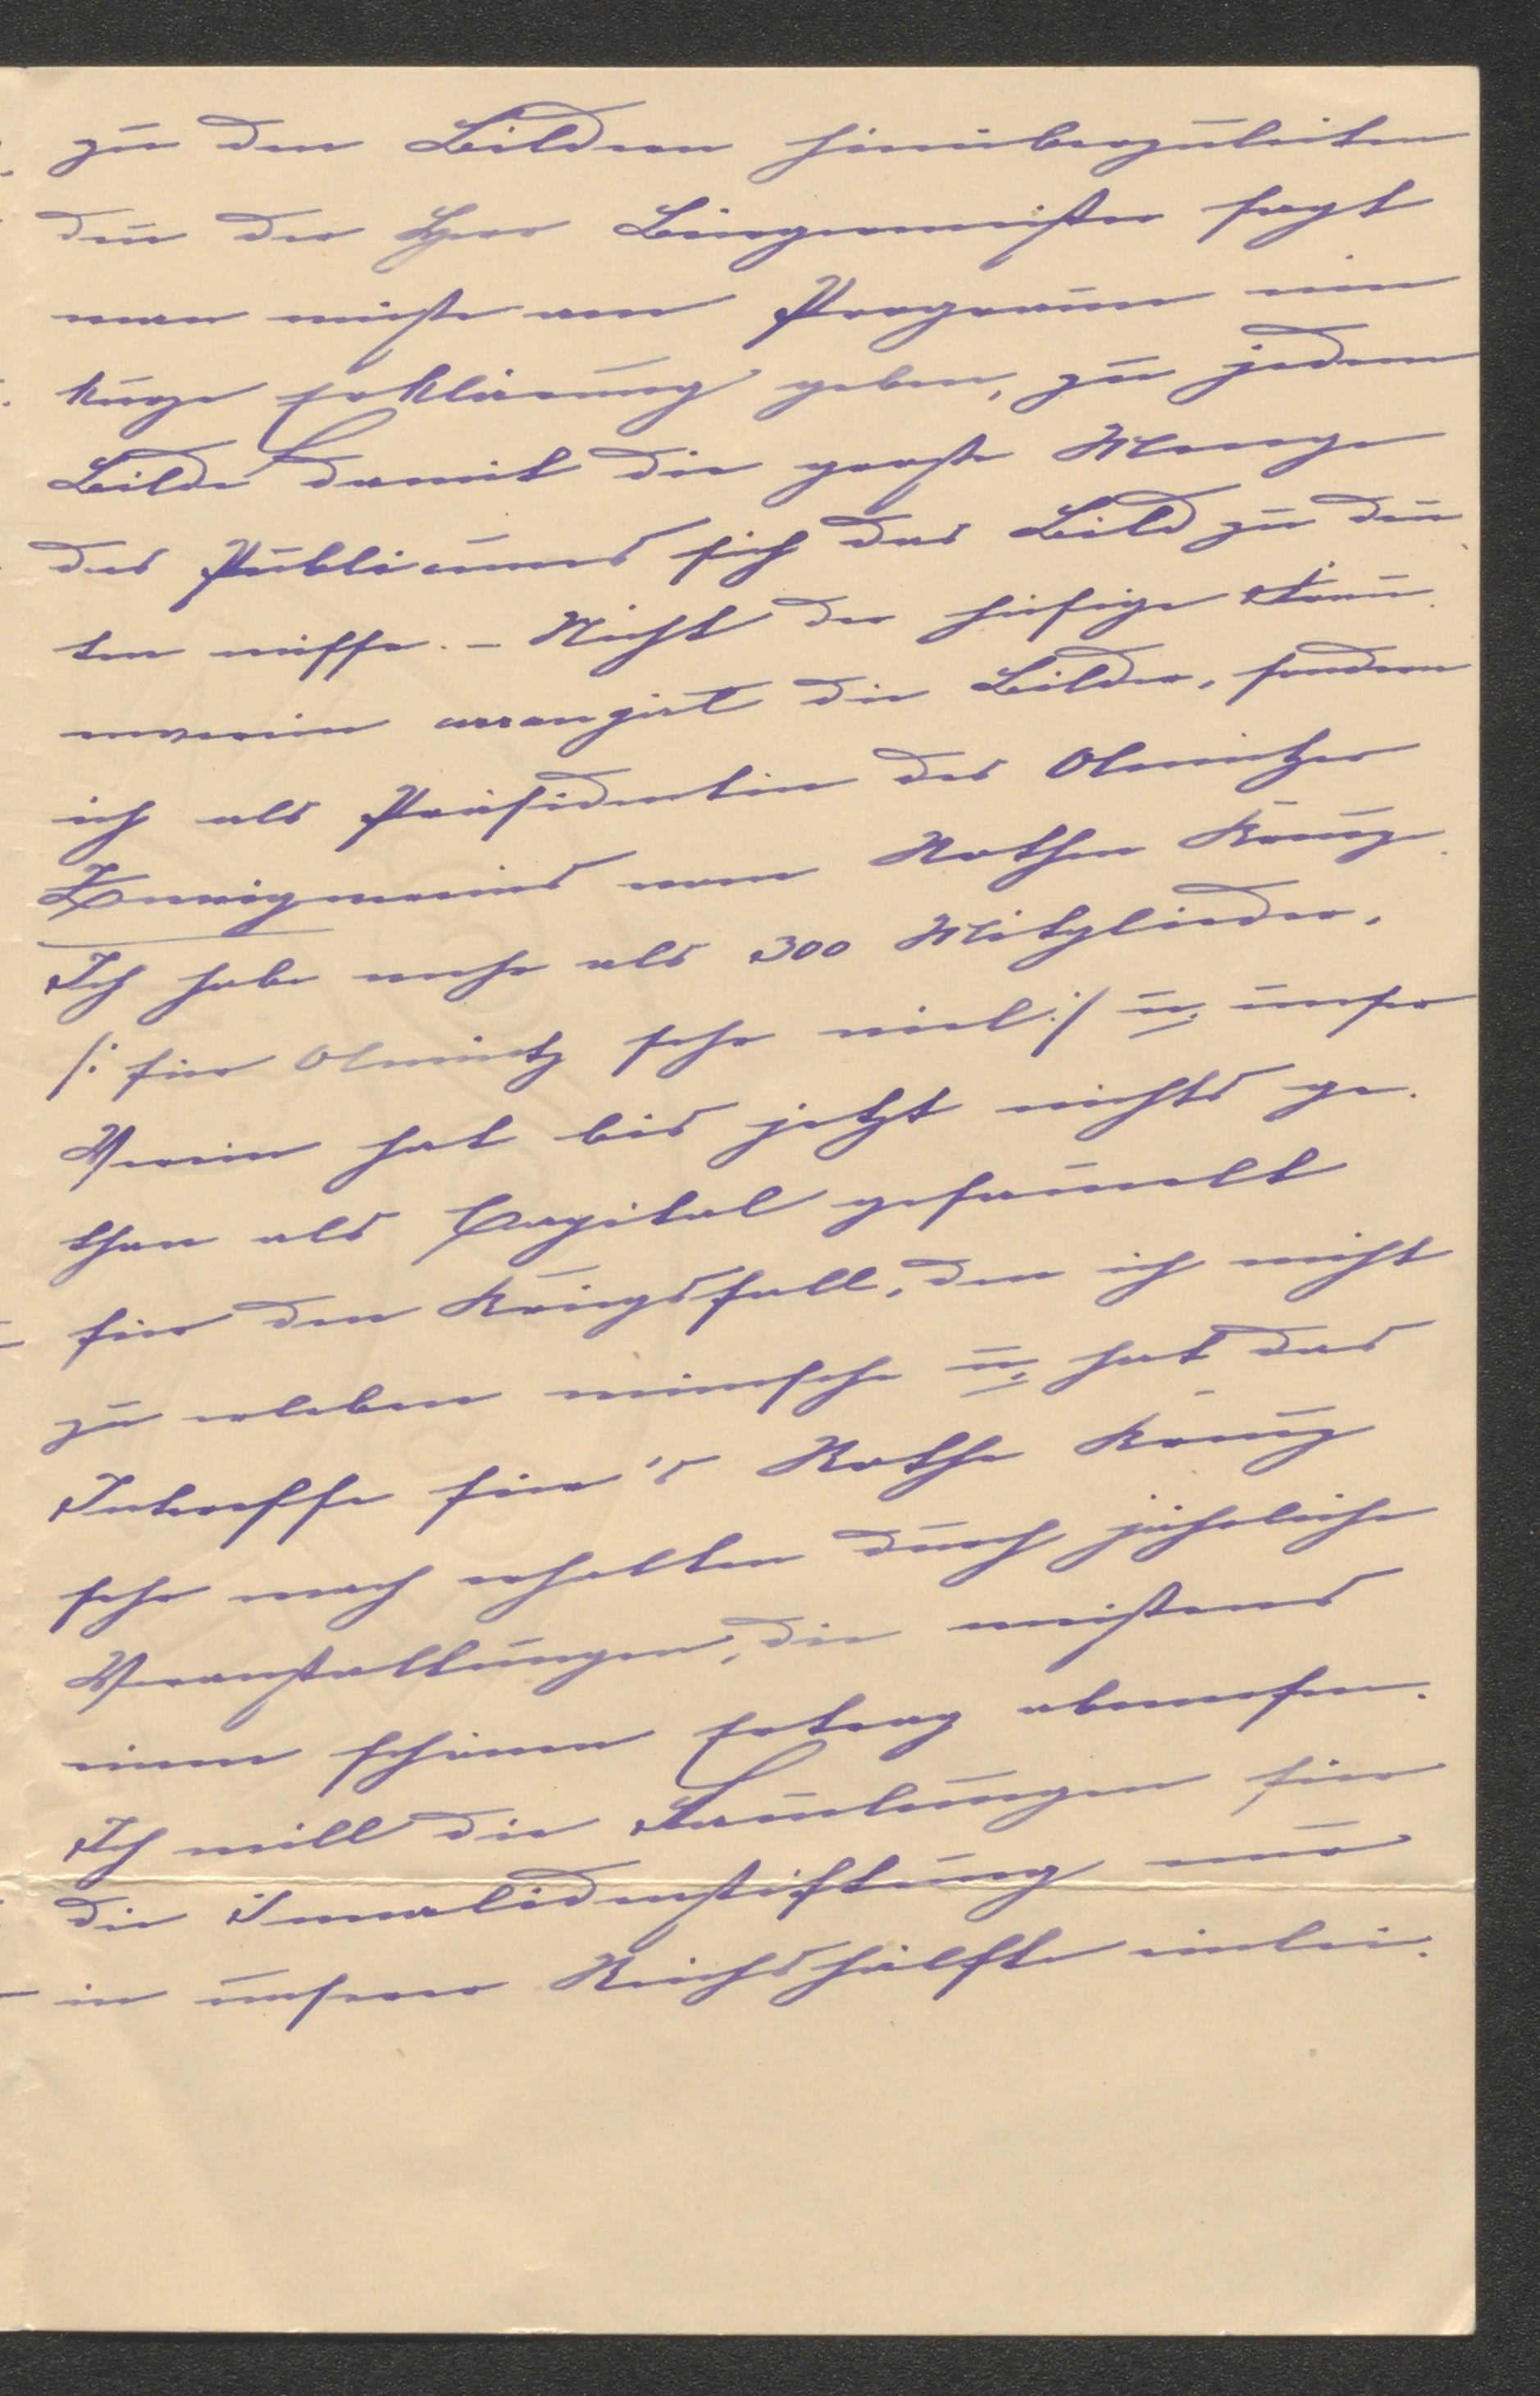 zu den Bildern hinüberzuleiten
den̅ der Herr Bürgermeister sagt
man müßte am Program̅ eine
kurze Erklärung geben, zu jedem
Bilde damit die große Menge
des Publicums sich das Bild zu deu
ten wisse. – Nicht der hiesige Frau
enverein arrangirt die Bilder, sondern
ich als Präsidentin des Olmützer
Zweigvereins vom Rothen Kreuz.
Ich habe mehr als 300 Mitglieder,
/: für Olmütz sehr viel :/ u. unser
Verein hat bis jetzt nichts ge-
than als Capital gesam̅elt
für den Kriegsfall, den ich nicht
zu erleben wünsche u. hat das
Interesse für's Rothe Kreuz
sehr wach erhalten durch jährliche
Veranstaltungen, die meistens
einen schönen Ertrag abwerfen.
Ich will die Sam̅lungen für
die Invalidenstiftung nur
in unserer Reichshälfte einlei-